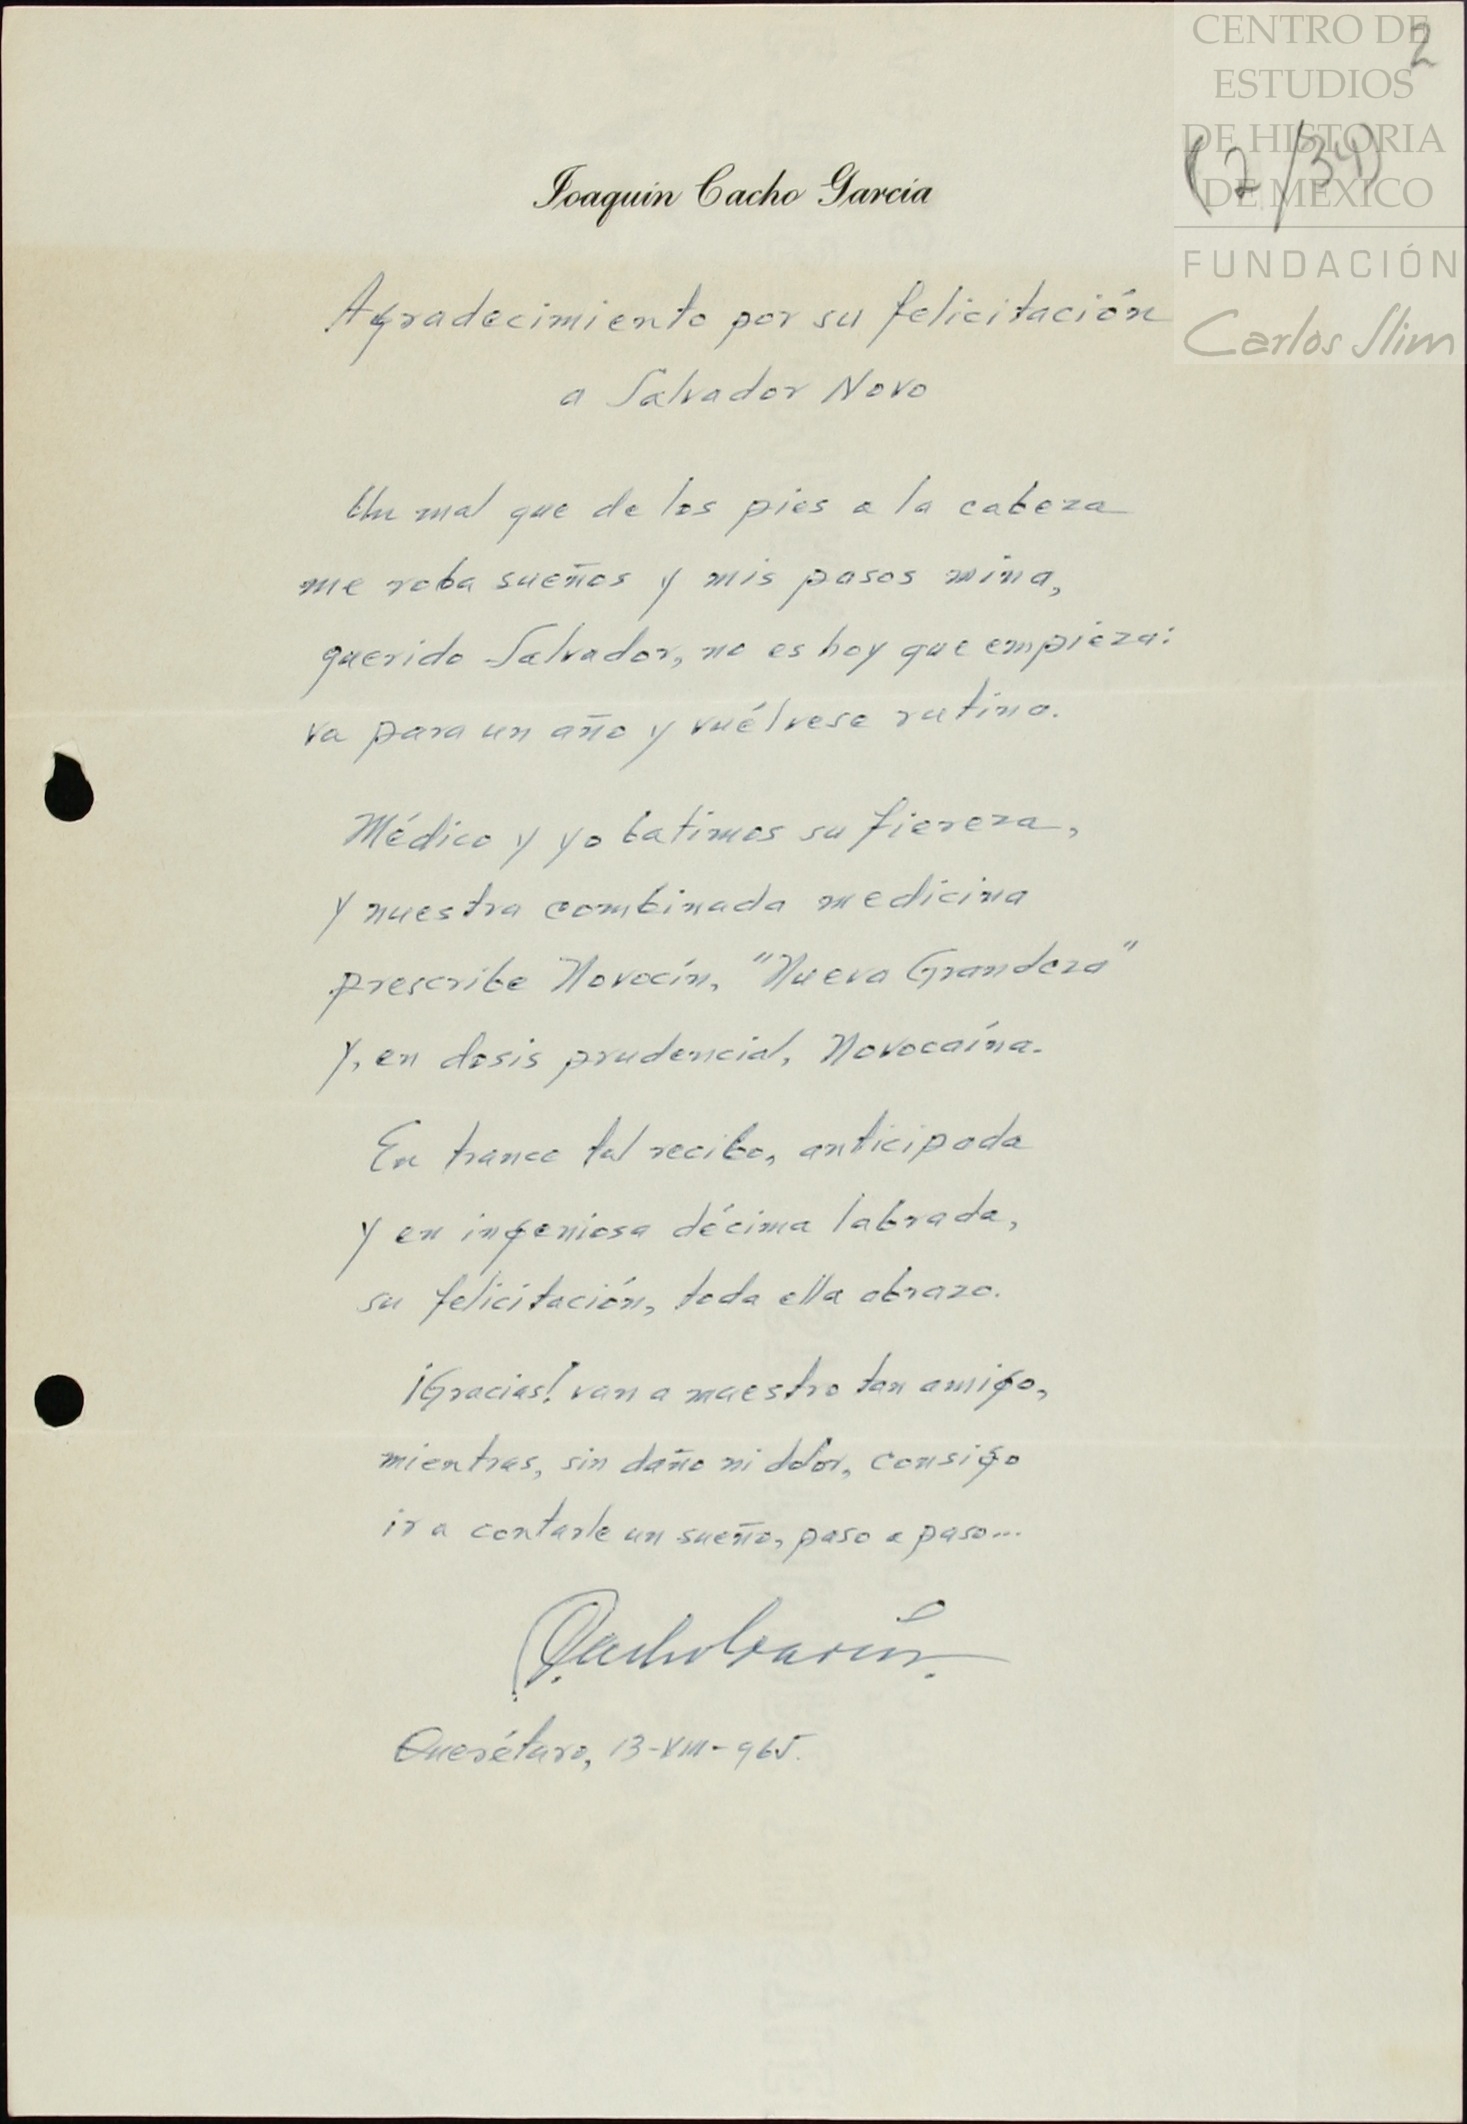 CENTRO DE
ESTUDIOS
DE HISTORIA
DE MÉXICO
FUNDACIÓN
Carlos Slim
2
(2/34)
Joaquín Cacho García
Agradecimiento por su felicitación
a Salvador Novo
Un mal que de los pies a la cabeza
me roba sueños y mis pasos mina,
querido Salvador, no es hoy que empieza:
va para un año y vuélvese rutina.
Médico y yo batimos su fiereza,
y nuestra combinada medicina
prescribe Novocín, "Nueva Grandeza"
y, en dosis prudencial, Novocaína.
En trance tal recibo, anticipada
y en ingeniosa décima labrada,
su felicitación, toda ella abrazo.
¡Gracias! van a maestro tan amigo,
mientras, sin daño ni dolor, consigo
ir a contarle un sueño, paso a paso...
CachoGarcía.
Querétaro, 13-VIII-965.